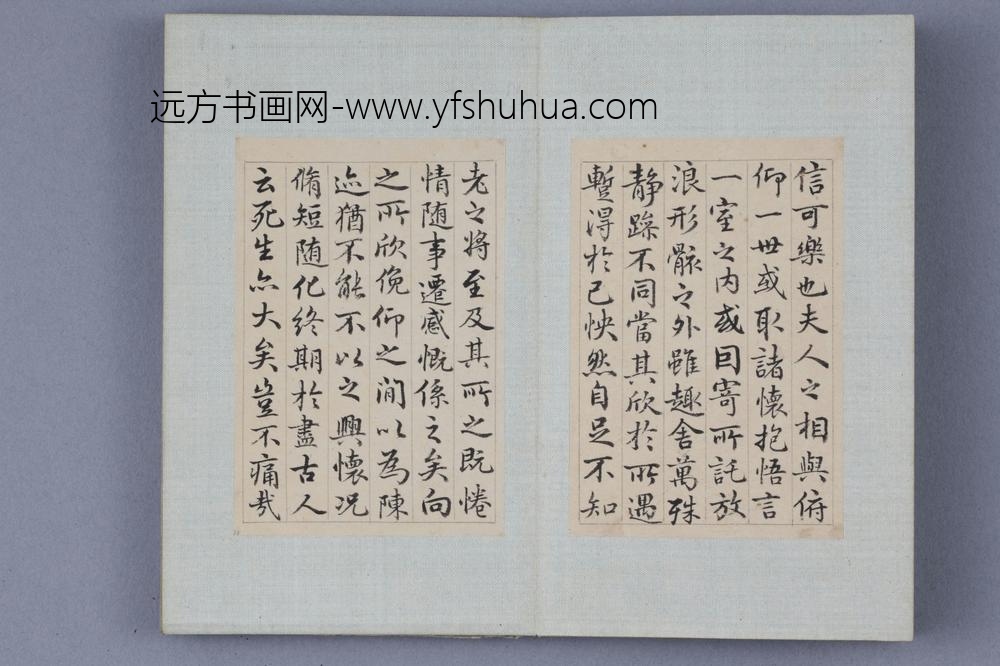 远方书画网-www.yfshuhua.com
信可樂也夫人之相與俯
仰一世或取諸懷抱悟言
一室之内或因寄所託放
浪形骸之外雖趣舍萬殊
静躁不同當其欣於所遇
蹔得於己怏然自足不知
老之將至及其所之既惓
情随事遷感慨係之矣向
之所欣俛仰之閒以為陳
迹猶不能不以之興懷况
脩短随化終期於盡古人
云死生亦大矣豈不痛哉